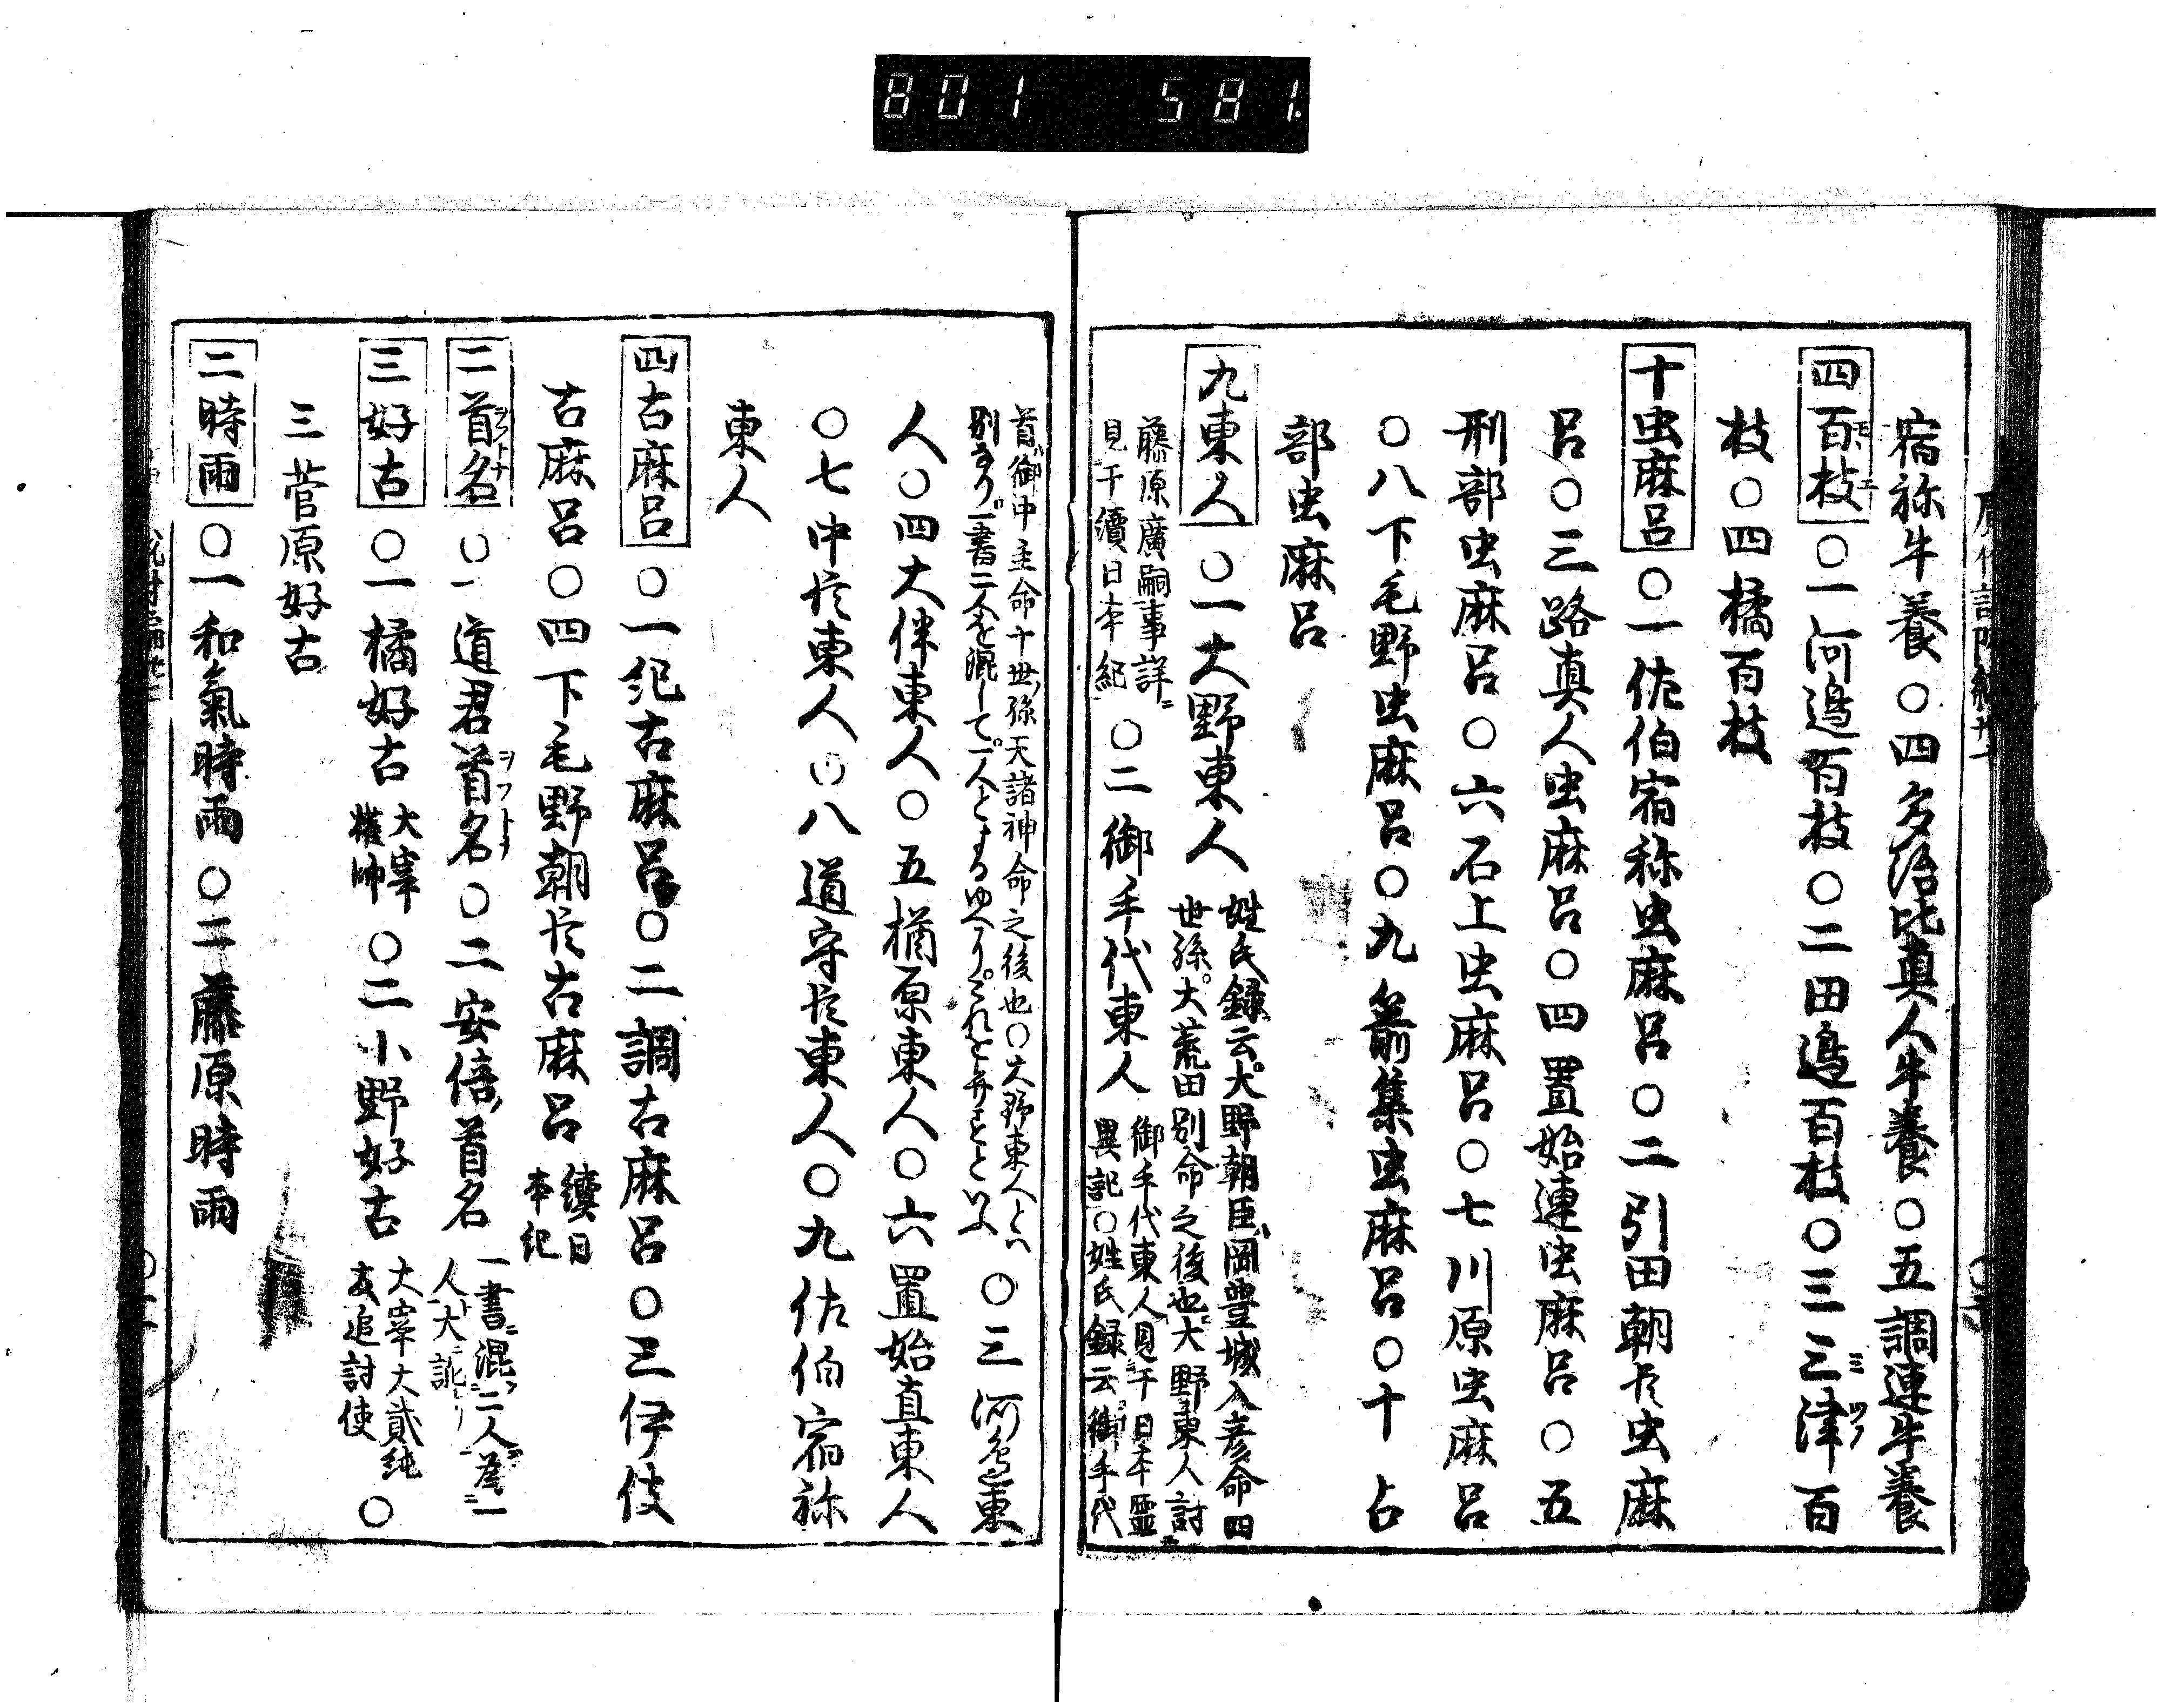 801 581.
宿祢牛養〇四多治比真人牛養〇五調連牛養
四百枝〇一河邉百枝〇二田邉百枝〇三三津百
枝〇四橘百枝
十虫麻呂〇一佐伯宿祢虫麻呂〇二引田朝臣虫麻
呂〇三路真人虫麻呂〇四置始連虫麻呂〇五
刑部虫麻呂〇六石上虫麻呂〇七川原虫麻呂
〇八下毛野虫麻呂〇九箭集虫麻呂〇十占
部虫麻呂
九東人〇一大野東人
姓氏録云。大野朝臣ハ同豊城入彦命四
世孫。大荒田別命之後也。大野東人討
藤原廣嗣事詳ニ
見于續日本紀
〇二御手代東人
御手代東人見于日本靈
異記〇姓氏録云御手代
首ハ御中主命十世ノ孫天諸神命之後也〇大野東人とハ
別なり。一書二人を混して。一人とするゆへり。これを弁ことといふ
〇三河邉東
人〇四大伴東人〇五楢原東人〇六置始直東人
〇七中臣東人〇八道守臣東人〇九佐伯宿祢
東人
四古麻呂〇一紀古麻呂〇二調古麻呂〇三伊伎
古麻呂〇四下毛野朝臣古麻呂
續日
本紀
二首名〇一道君首名〇二安倍首名
一書ニ混二人為一
人大ニ訛
三好古〇一橘好古
大宰
權帥
〇二小野好古
大宰大貳純
友追討使
〇
三菅原好古
二時雨〇一和氣時雨〇二藤原時雨